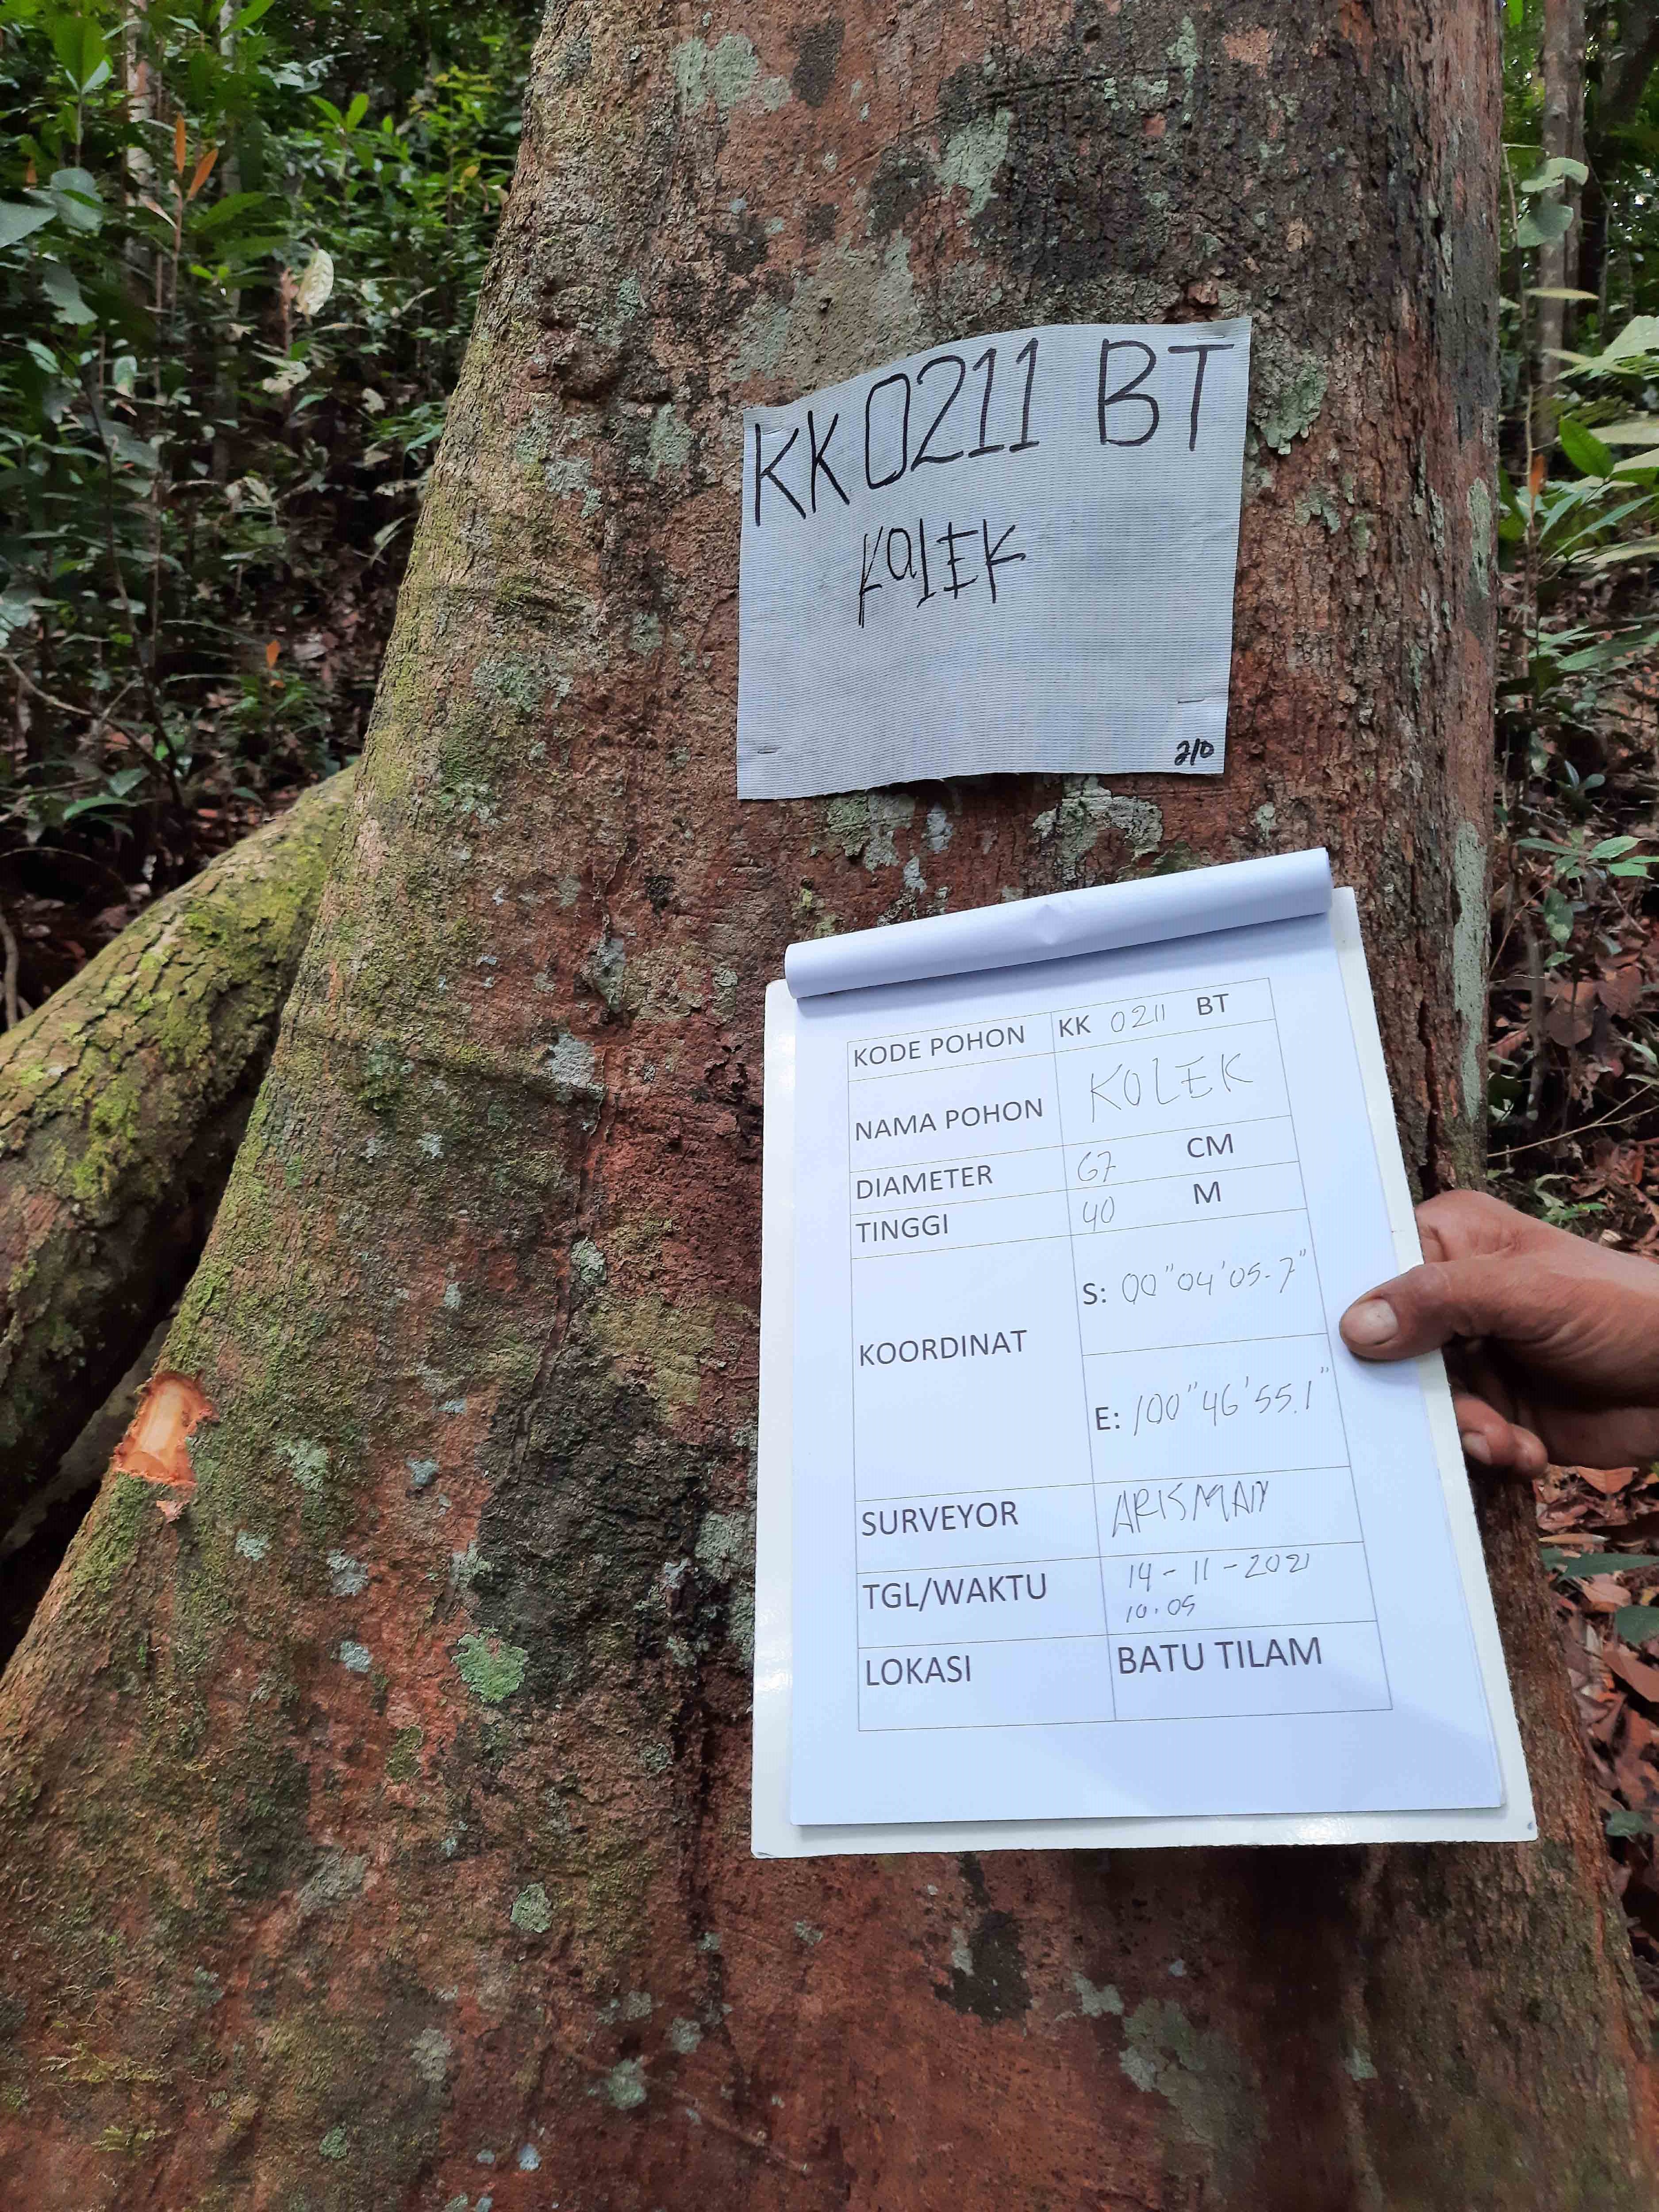 KK 0211 BT
KOLEK
210
KODE POHON KK 0211 BT
NAMA POHON KOLEK
DIAMETER 67 CM
TINGGI 40 M
KOORDINAT
S: 00"04'05.7"
E: 100"46'55.1"
SURVEYOR ARISMAN
TGL/WAKTU 14-11-2021
10.05
LOKASI BATU TILAM